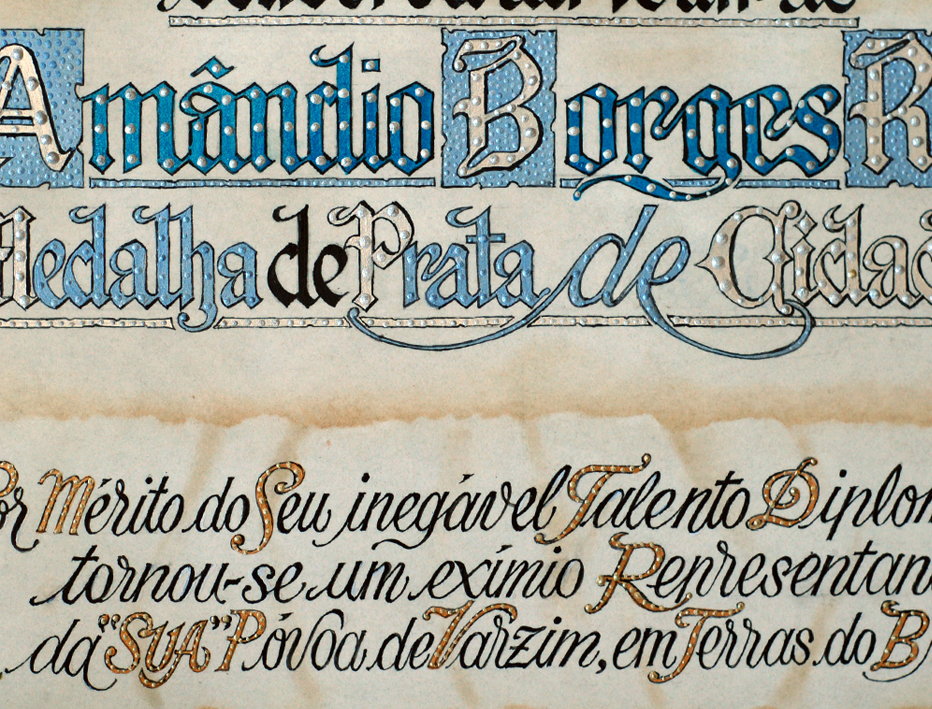 Amândio Borges R
Medalha de Prata de Cidad
Por Mérito do Seu inegável Talento Diplom
tornou-se um exímio Representan
da "SUA" Póvoa de Varzim, em Terras do B